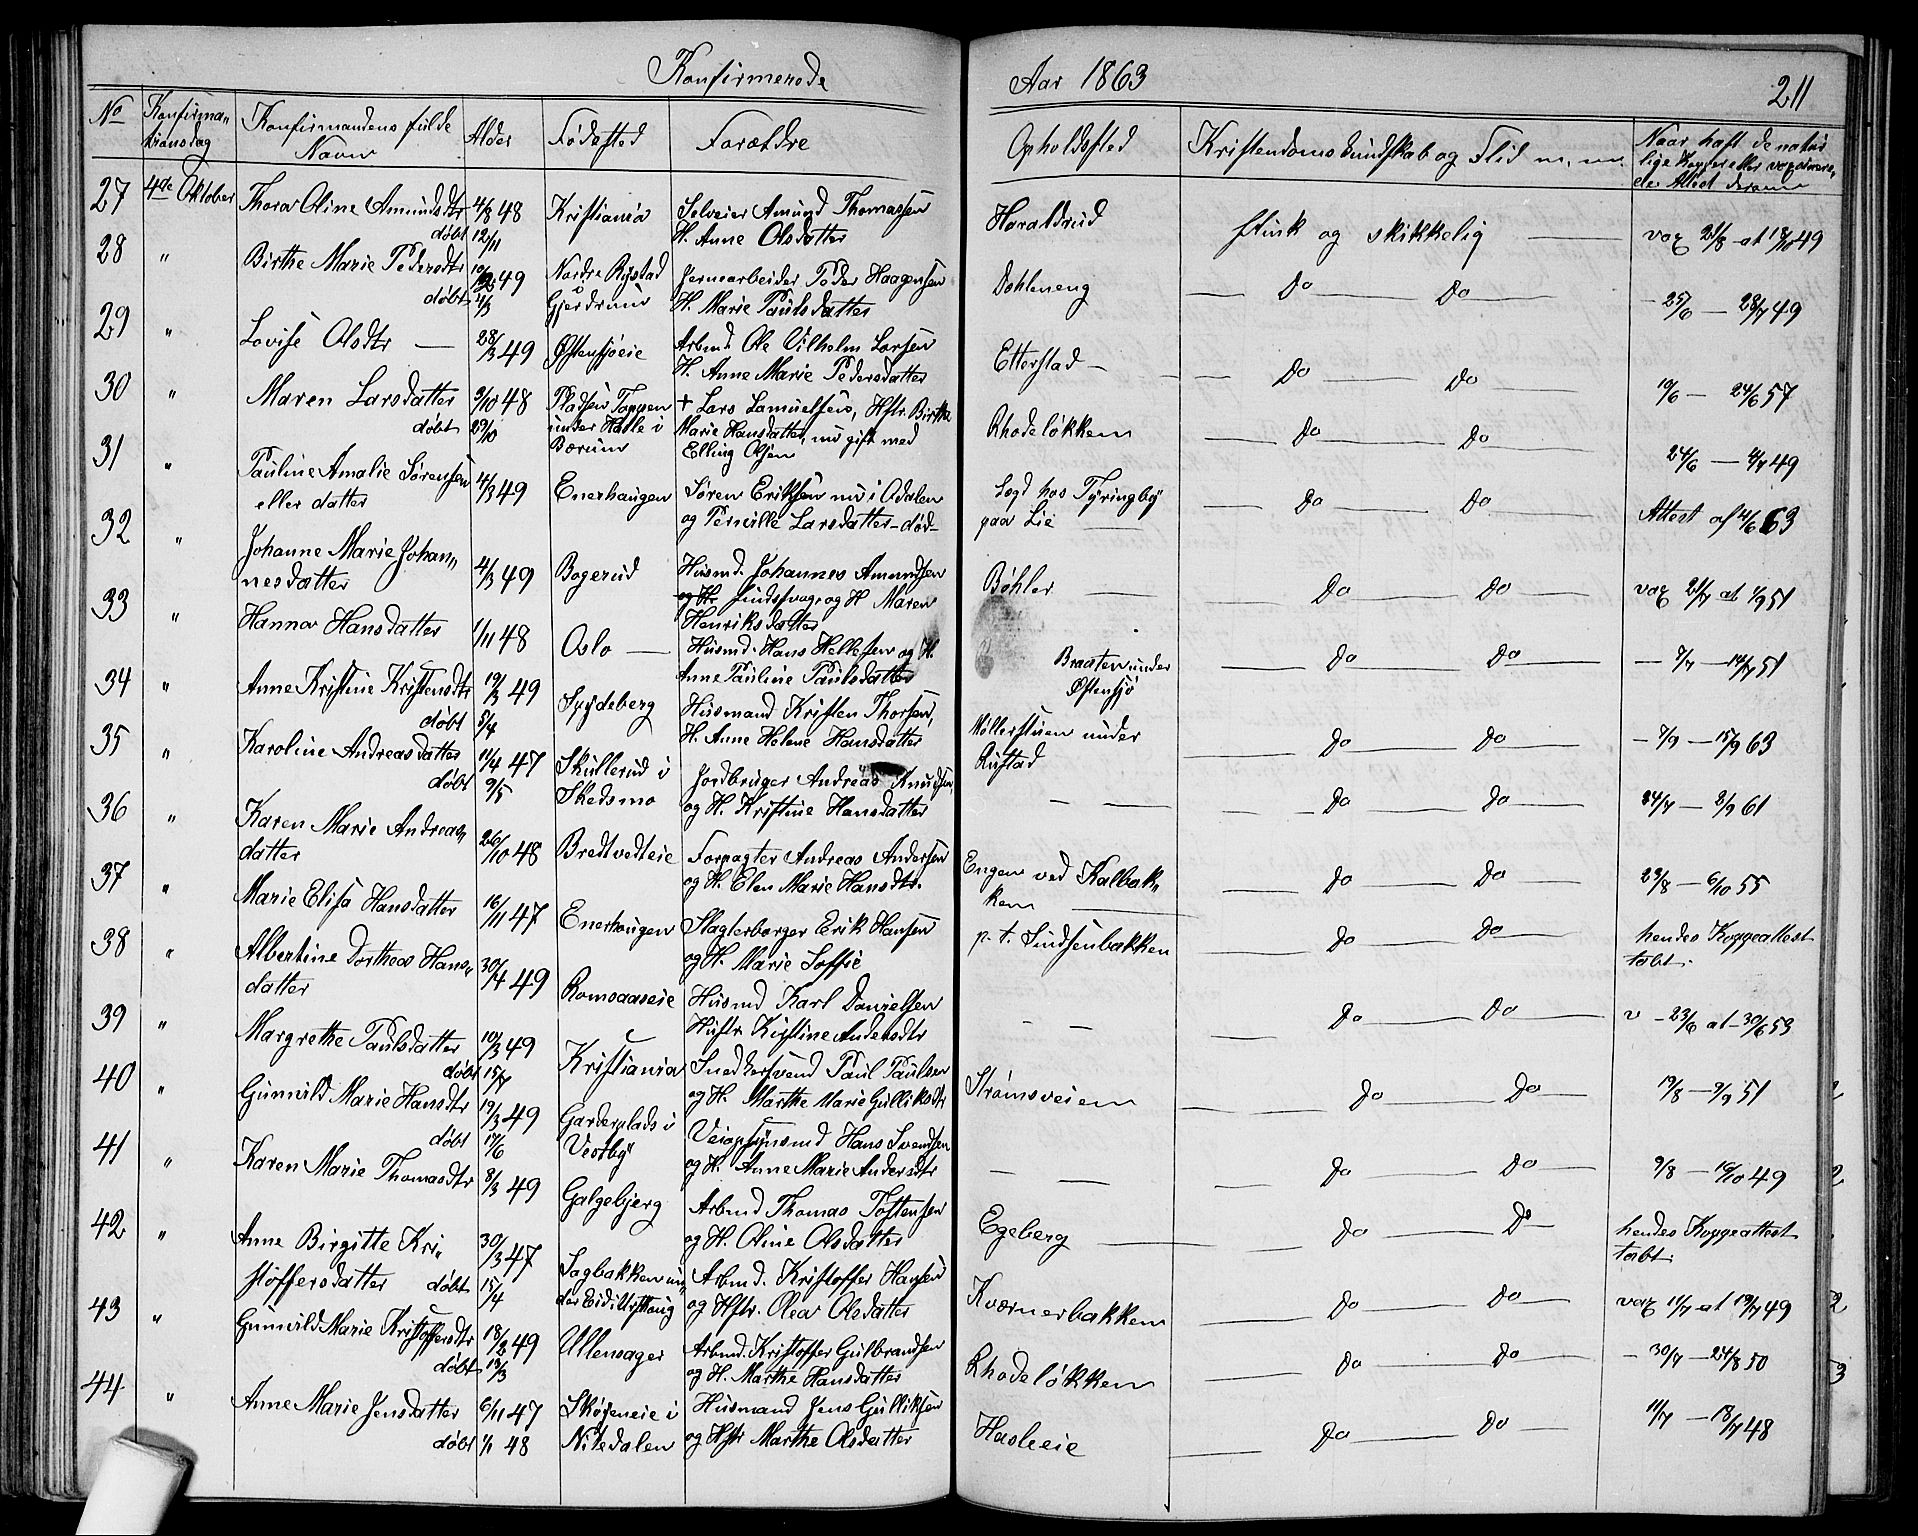 Konfirmerede
Aar 1863
211
No
Konfirma-
tionsdag
Konfirmandens fulde
Navn
Alder
Fødested
Forældre
Opholdssted
Kristendoms kundskab og Flid m. m.
Naar haft de natur
lige Kopper eller vaccinere-
de Attest derom
27 4de Oktober Thora Oline Amundsdtr 4/8 48 Kristiania Selveier Amund Thomassen Haraldrud flink og skikkelig — vax 21/8 at 18/10 49
døbt 12/11 H. Anne Olsdatter
28 " Birthe Marie Pedersdtr 49 Nordre Rystad Jernarbeider Peder Haagensen Dehleneng — Do — Do — 25/6 — 28/7 49
døbt 4/3 Gjerdrum H. Marie Paulsdatter
29 " Lovise Olsdtr — 28/3 49 Østensjøeie Arbmd. Ole Vilhelm Larsen Etterstad — — Do — Do — 19/6 — 24/6 57
H. Anne Marie Pedersdatter
30 " Maren Larsdatter 9/10 48 Pladsen Tappen + Lars Samuelsens, Hstr. Birthe Rhodeløkken — Do — Do — 24/6 — 4/7 49
døbt 29/10 under Hasle i Marie Hansdatter, nu gift med
Bærum Elling Olsen
31 " Pauline Amalie Sørensen 4/3 49 Enerhaugen Søren Eriksen nu i Odalen Logd hos Tyringby — Do — Do — Attest af 4/6 63
eller datter og Pernille Larsdatter - død - paa Lie
32 " Johanne Marie Johan- 4/3 49 Bogerud Husmd. Johannes Amundsen Bøhler — — Do — Do — vax 21/7 at 1/9 51
nesdatter og H. Maren
Henriksdatter
33 " Hanna Hansdatter 1/11 48 Oslo — Husmd. Hans Hellesen og H. Braaten under — Do — Do — — 7/7 — 14/7 51
Anne Pauline Paulsdatter Østensjø
34 " Anne Kristine Kristensdtr 19/3 49 Spydeberg Husmand Kristen Thorsen, Møllerstuen under — Do — Do — — 7/9 — 15/9 63
døbt 5/4 H. Anne Helene Hansdatter Rustad
35 " Karoline Andreasdatter 11/4 47 Skullerud i Jordbruger Andreas Knudsen — — — Do — Do — 24/7 — 2/9 61
døbt 9/5 Skedsmo og H. Kristine Hansdatter
36 " Karen Marie Andreas- 26/10 48 Bredtvedteie Forpagter Andreas Andersen Engen ved Kalbak- — Do — Do — 29/8 — 6/10 55
datter og H. Elen Marie Hansdtr. ken
37 " Marie Elisa Hansdatter 16/11 47 Enerhaugen Slagterborger Erik Hansen p. t. Sindsenbakken — Do — Do — hendes Koppeattest
og H. Marie Soffie tabt.
38 " Albertine Dorthea Hans- 30/4 49 Romsaaseie Husmd Karl Danielsen — — — Do — Do — v — 23/6 at — 30/6 53
datter Hustr. Kistine Andersdtr
39 " Margrethe Paulsdatter 10/3 49 Kristiania Snedkersvend Paul Paulsen Strømsveien — Do — Do — 19/8 — 9/9 51
døbt 15/7 og H. Marthe Marie Gulliksdtr
40 " Gunnild Marie Hansdtr 19/3 49 Garderplads i Veiopsynsmd Hans Svendsen — — — Do — Do — 9/8 — 10/10 49
døbt 17/6 Vestby og H. Anne Marie Andersdtr
41 " Karen Marie Thomasdtr 8/3 49 Galgebjerg Arbmd Thomas Tostensen Egeberg — — Do — Do — hendes Koppeattest
og H. Oline Olsdatter tabt.
42 " Anne Birgitte Kri- 30/3 47 Sagbakken un- Arbmd. Kristoffer Hansen Kværnerbakken — Do — Do — vax 11/7 at 19/7 49
stoffersdatter døbt 15/4 der Eid i og Hstr. Olea Olsdatter
43 " Gunnild Marie Kristoffersdtr 18/2 49 Ullensager Arbmd. Kristoffer Gulbrandsen Rhodeløkken — Do — Do — — 30/7 — 24/8 50
døbt 18/3 og H. Marthe Hansdatter
44 " Anne Marie Jensdatter 6/11 47 Skøieneie i Husmand Jens Gulliksen Hasleeie — Do — Do — 11/7 — 18/7 48
døbt 1/1 48 Nitedalen og Hstr Marthe Olsdatter